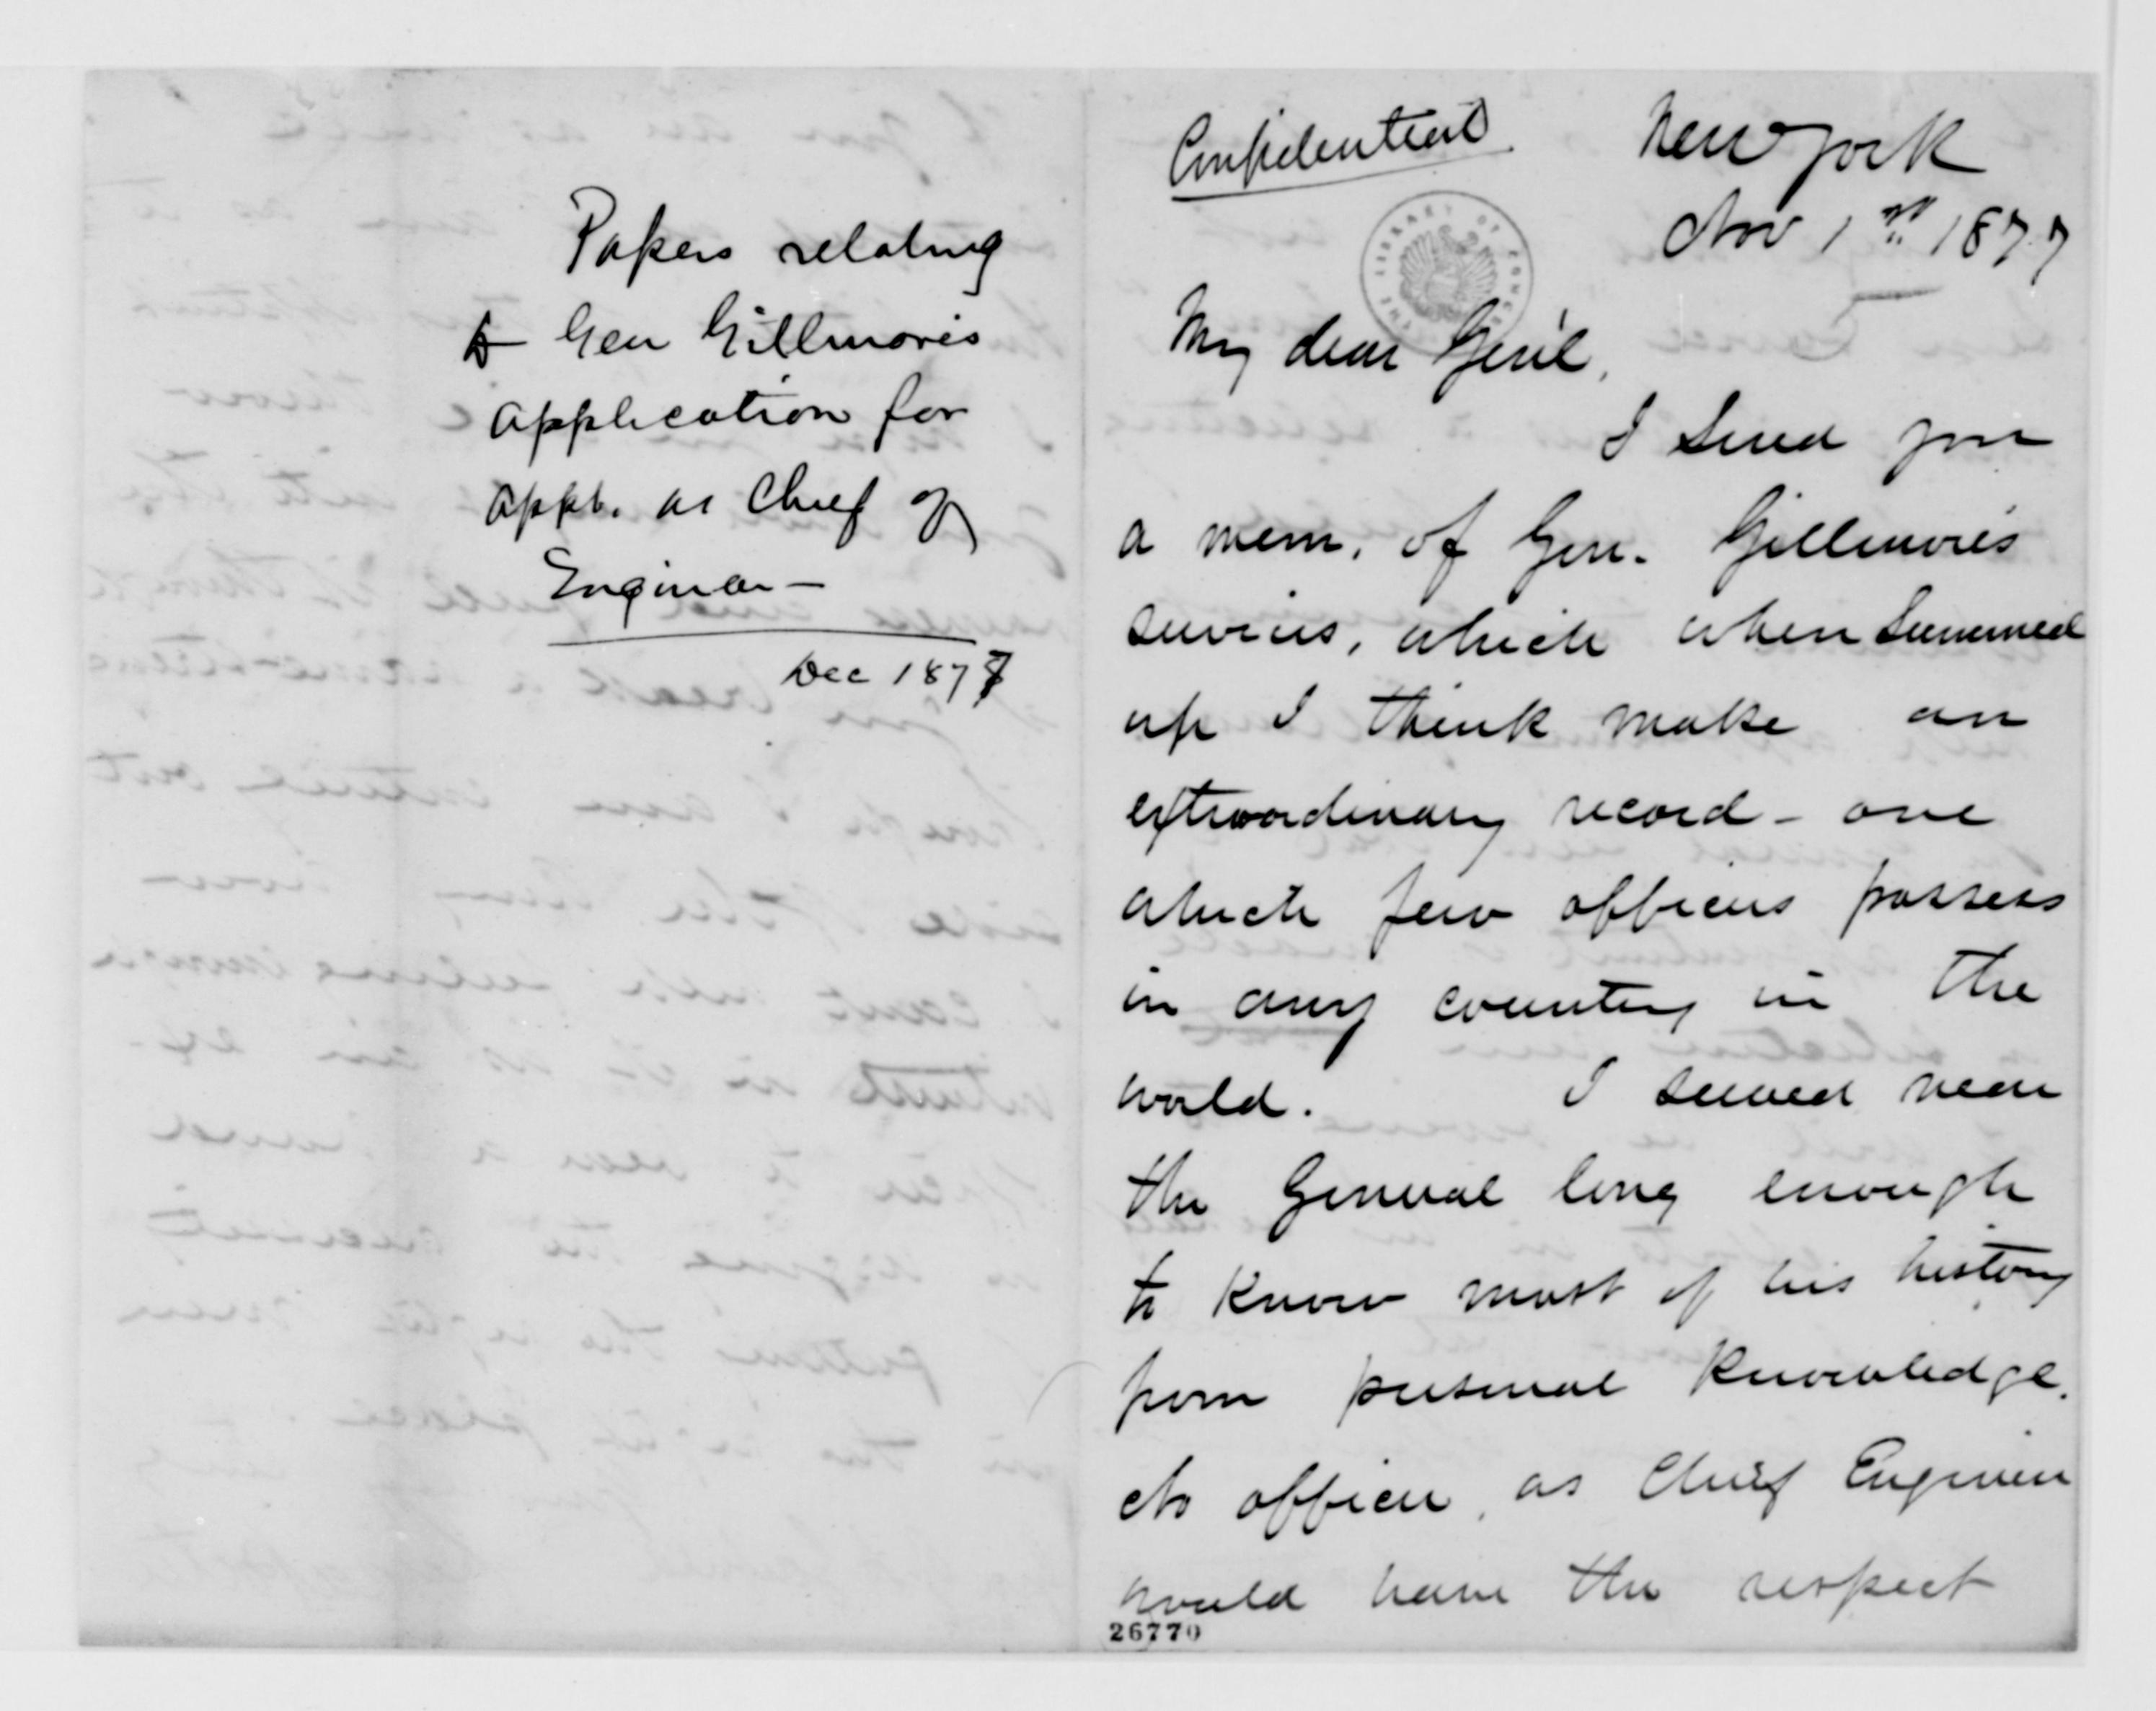 Papers relating
to Gen Gillmore's
application for
appt. as Chief of
Engineer —
Dec 1877
Confidential.
New York
Nov 1st 1877
My dear Gen'l,
I send you
a mem. of Gen. Gillmore's
services, which when summed
up I think make an
extraordinary record - one
which few officers possess
in any country in the
world. I served near
the General long enough
to know most of his history
from personal knowledge.
No officer, as Chief Engineer
would have the respect
26770